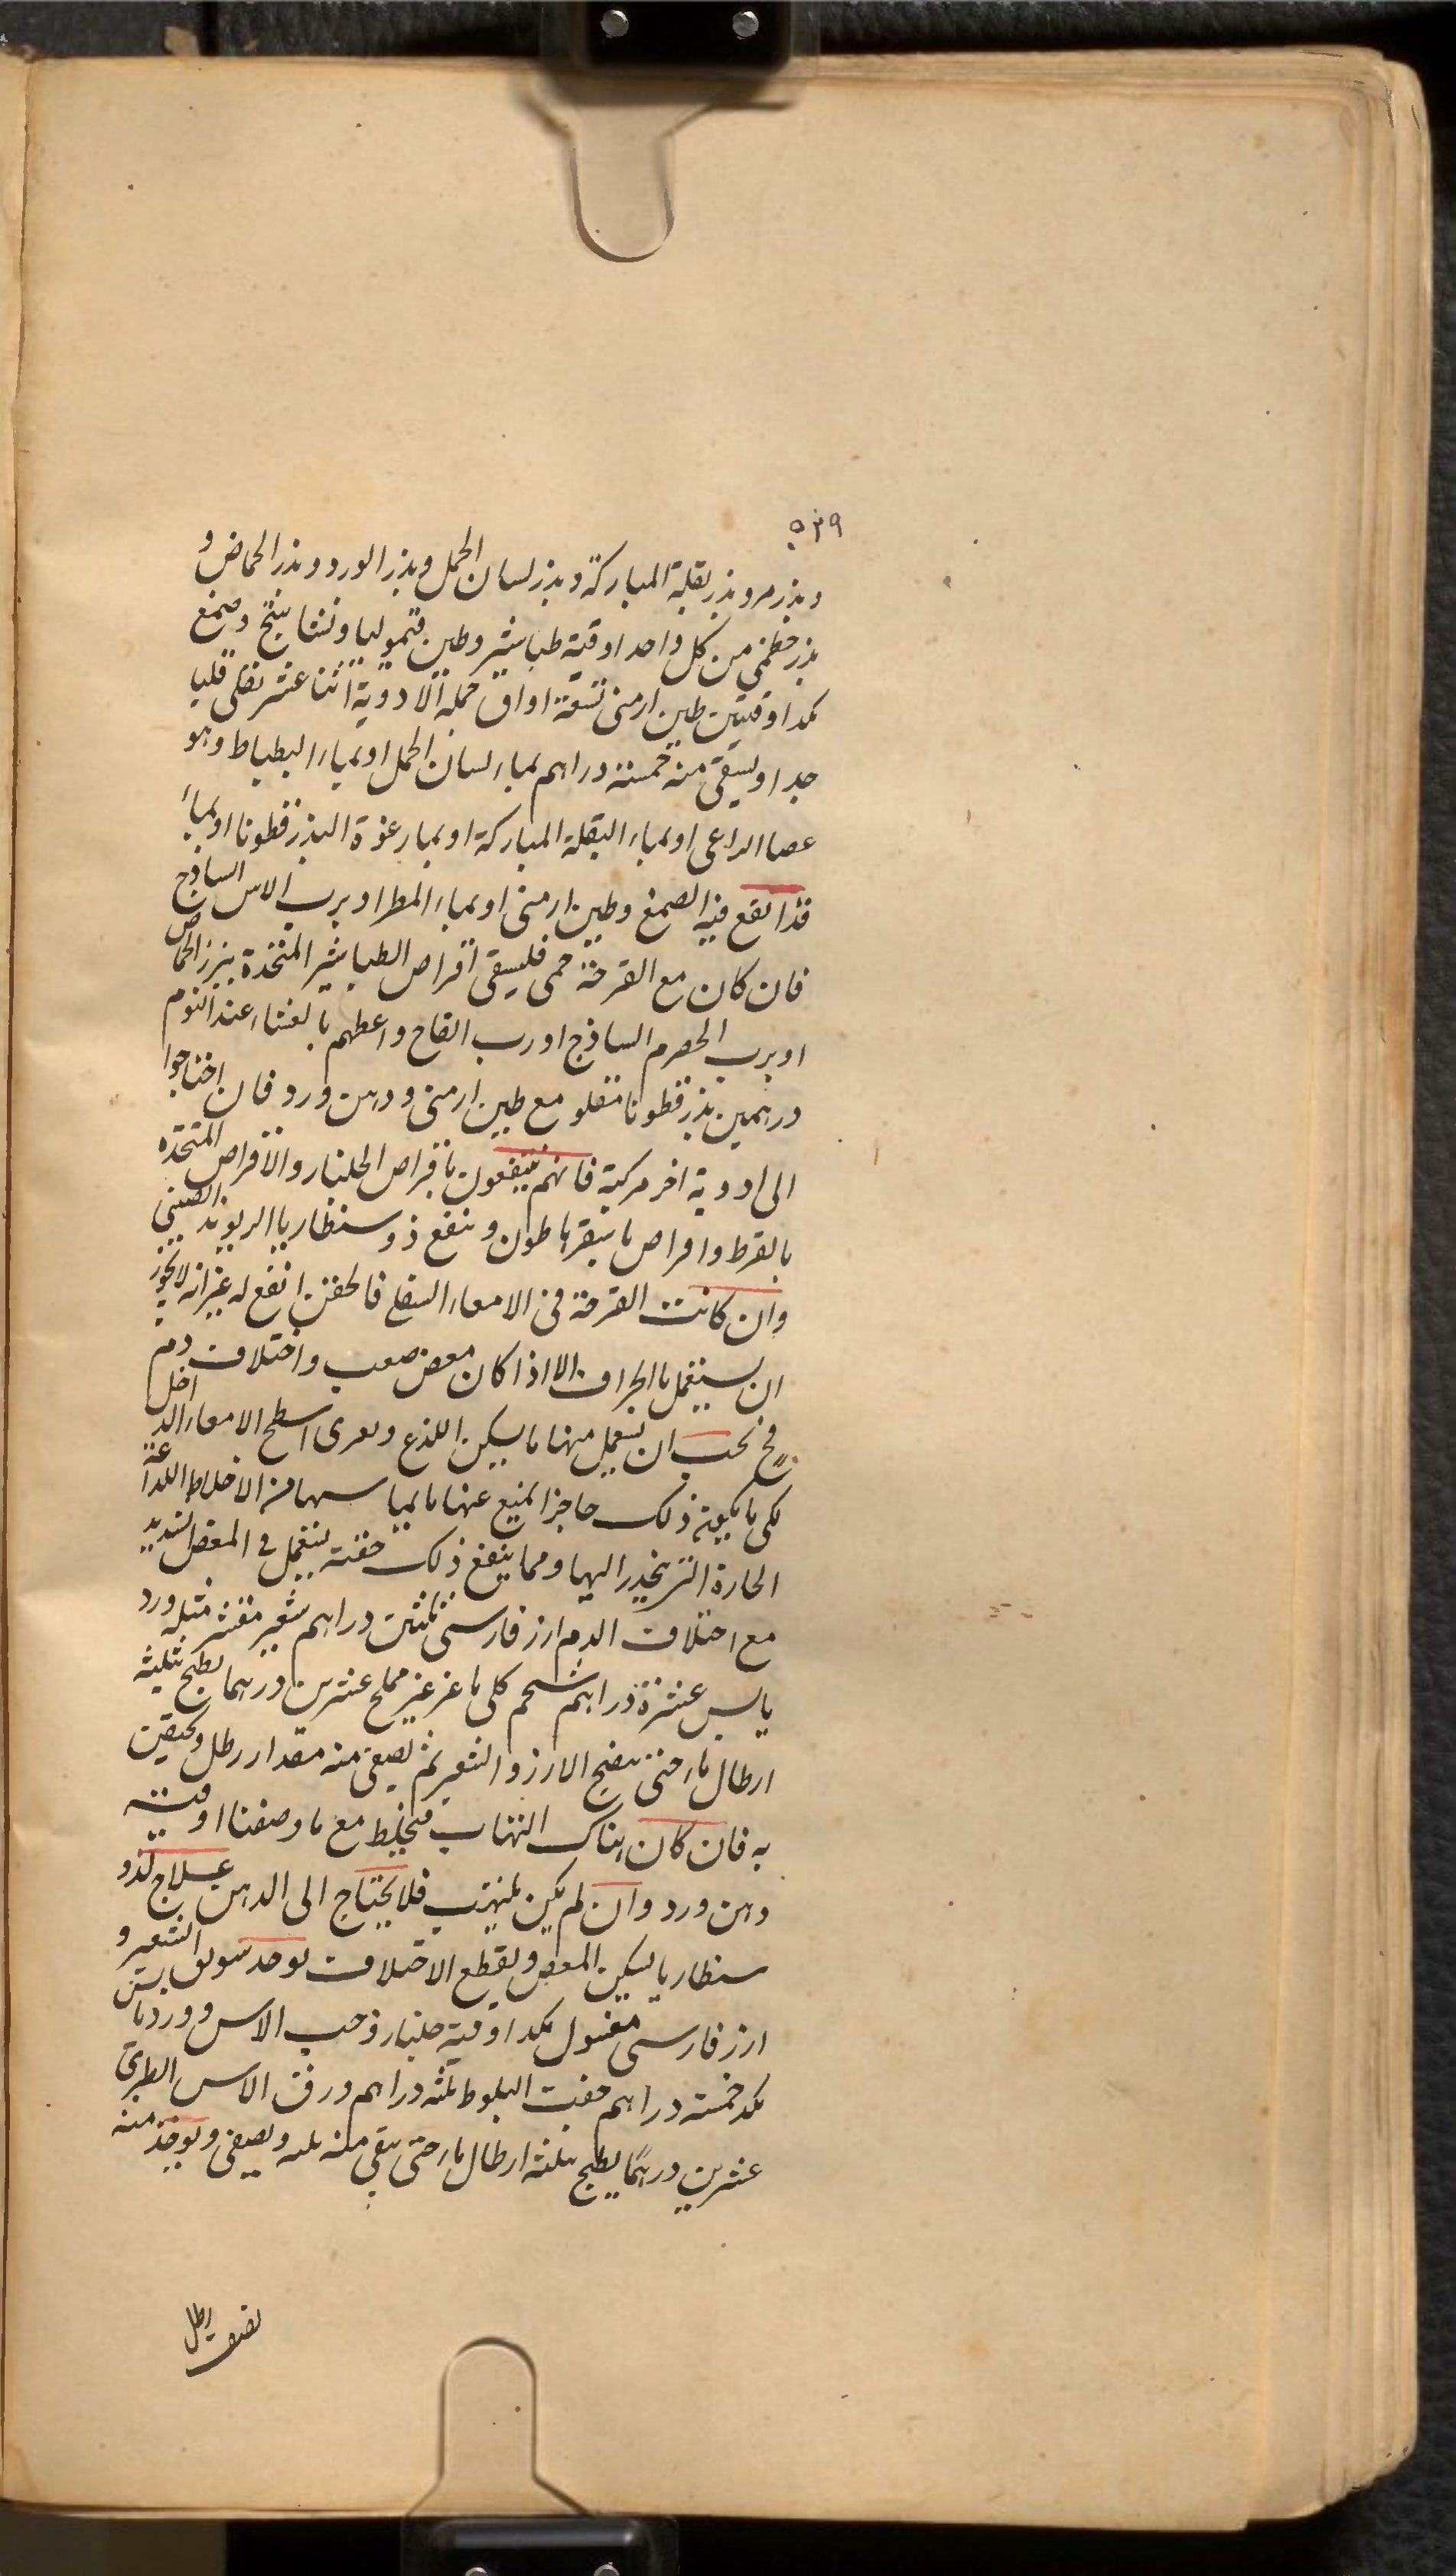 ٥٣٩
وبذر مرو وبذر بقلة المباركة وبذر لسان الحمل وبذر الورد وبذر الحماض و
بذر خطمى من كل واحد اوقية طباشير وطين قيموليا ونشاستج وصمغ
مكد اوقيتين طين ارمنى تسعة اواق جملة الادوية اثنا عشر تقلى قليا
جيدا ويسقى منه خمسة دراهم بماء لسان الحمل او بماء البطباط وهو
عصا الراعى او بماء البقلة المباركة او بماء رغوة البذر قطونا او بماء
قد انقع فيه الصمغ وطين ارمنى او بماء المطر او برب الاس الساذج
فان كان مع القرحة حمى فليسقى اقراص الطباشير المتخذة ببزر الحماض
او برب الحصرم الساذج او رب التفاح واعطهم بالعشاء عند النوم
درهمين بذر قطونا مقلو مع طين ارمنى ودهن ورد فان احتاجوا
الى ادوية اخر مركبة فانهم ينتفعون باقراص الجلنار والاقراص المتخذه
بالقرط واقراص ينفع ذوسنطاريا الريوند الصينى
وان كانت القرحة فى الامعاء السفلى فالحقن انفع له غير انه لا يجوز
ان يستعمل الا اذا كان مغص صعب واختلاف دم
فح يجب ان يستعمل منها ما يسكن اللذع ويغرى سطح الامعاء الداخل
لكى ما يكون ذلك حاجزا يمنع عنها ما يماسها من الاخلاط اللذاعة
الحارة التى ينحدر اليها ومما ينفع ذلك حقنة تستعمل فى المغص الشديد
مع اختلاف الدم ارز فارسى ثلثين دراهم شعير مقشر مثله ورد
يابس عشرة دراهم شحم كلى ماعز غير مملح عشرين درهما يطبخ بثلثة
ارطال ماء حتى ينضج الارز والشعير ثم يصفى منه مقدار رطل ويحقن
به فان كان هناك التهاب فيخلط مع ما وصفنا اوقية
دهن ورد وان لم يكن تلهب فلا يحتاج الى الدهن علاج لذو
سنطاريا يسكن المغص ويقطع الاختلاف يوخذ سويق الشعير و
ارز فارسى مغسول مكد اوقية جلنار وحب الاس وورد يابس
مكد خمسة دراهم جفت البلوط ثلثه دراهم ورق الاس الطرى
عشرين درهما يطبخ بثلثه ارطال ماء حتى يبقى منه ثلثه ويصفى ويوخذ منه
نصف رطل